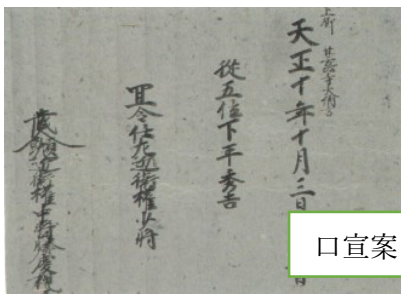 上卿 甘露寺大納言
天正十年十月三日
從五位下平秀吉
宜令任左近衛權少將
蔵人頭左近衛權中將藤慶親
口宣案